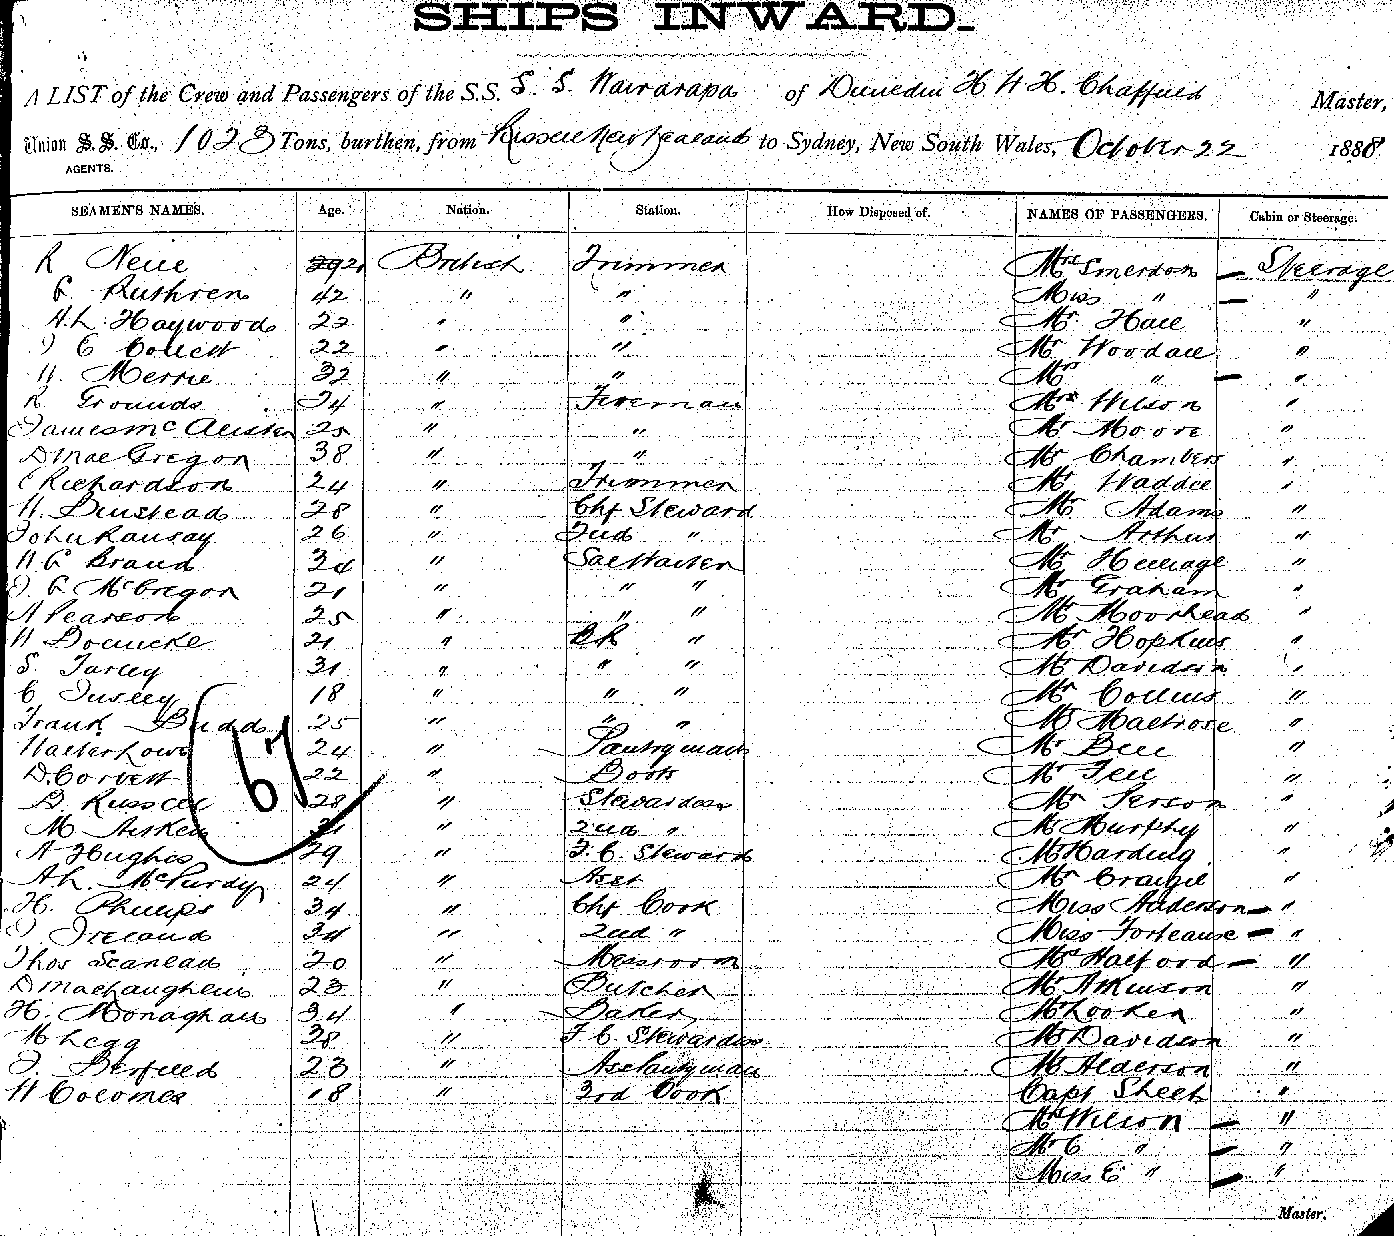 SHIPS INWARD.
A LIST of the Crew and Passengers of the S.S. S. S. Wairarapa of Dunedin H W H. Chaffield Master,
Union S. S. Co., 1023 Tons, burthen, from New Zealand to Sydney, New South Wales, October 22 1888
AGENTS.
SEAMEN'S NAMES. Age. Nation. Station. How Disposed of. NAMES OF PASSENGERS. Cabin or Steerage.
R British Trimmer Mrs Smerdon — Steerage
Ruthven 42 " " Miss " — "
A.L. Haywood 22 " " Mr Hall "
22 " " Mr Woodall "
W. Merrie 32 " " Mrs " — "
R Grounds 24 " Fireman Mrs Wilson "
James McAlister 25 " " Mr Moore "
D MacGregor 38 " " Mr Chambers "
C Richardson 24 " Trimmer Mr Waddle "
W. Binstead 28 " Chf Steward Mr Adams "
John Ramsay 26 " 2nd " Mr Arthur "
W G Brand 24 " Sal Waiter Mr "
McGregor 21 " " " Mr Graham "
A Pearson 25 " " " Mr Moorhead "
W 21 " " Mr Hopkins "
S. Turley 31 " " " Mr Davidson "
C 18 " " " Mr Collins "
Frank Budd 25 " " " Mr "
Walter Lowe 24 " Pantryman Mr Bell "
D. Corbett 22 " Boots Mr Tell "
67
B. Russell 28 " Stewardess Mr Person "
M Aitken 21 " 2nd " Mr Murphy "
A Hughes 29 " F. C. Steward Mr Harding "
A.L. McPurdy 24 " Asst Mr Craigie "
H. Phillips 34 " Chf Cook Miss Anderson — "
J Ireland 34 " 2nd " Miss — "
Thos Scanlan 20 " Messroom Mrs Halford — "
D MacLaughlin 23 " Butcher Mr Atkinson "
H. Monaghan 34 " Baker Mr Looker "
M Legg 38 " F C. Stewardess Mr Davidson "
23 " Ass Pantryman Mr Alderson "
W Colomes 18 " 3rd Cook Capt Sheet "
Mrs Wilson — "
Mr C " — "
Miss E " — "
Master.